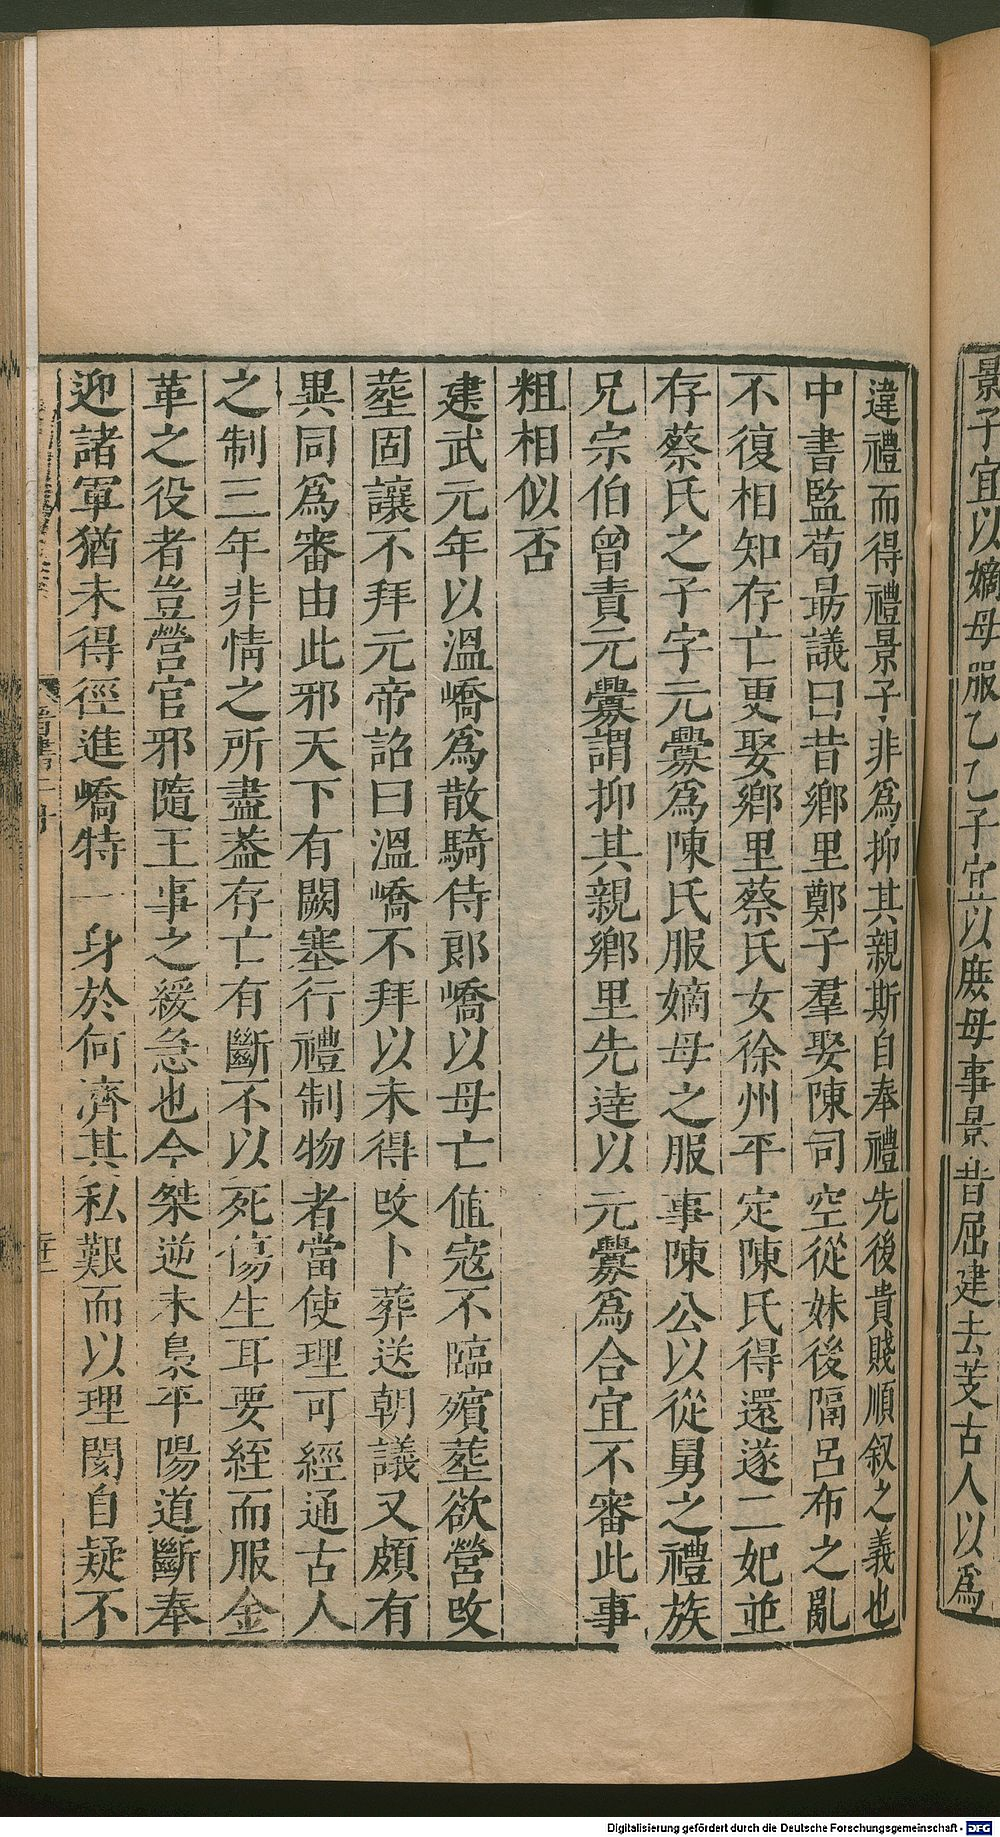 景子宜以嫡母服乙乙子宜以庶母事景昔屈建去芰古人以爲
違禮而得禮景子非爲抑其親斯自奉禮先後貴賤順叙之義也
中書監荀勗議曰昔鄉里鄭子羣娶陳司空從妹後隔呂布之亂
不復相知存亡更娶鄉里蔡氏女徐州平定陳氏得還遂二妃並
存蔡氏之子字元釁爲陳氏服嫡母之服事陳公以從舅之禮族
兄宗伯曾責元釁謂抑其親鄉里先達以元釁爲合宜不審此事
粗相似否
建武元年以溫嶠爲散騎侍郎嶠以母亡值寇不臨殯塟欲營攺
塟固讓不拜元帝詔曰溫嶠不拜以未得攺卜葬送朝議又頗有
異同爲審由此邪天下有闕塞行禮制物者當使理可經通古人
之制三年非情之所盡葢存亡有斷不以死傷生耳要絰而服金
革之役者豈營官邪隨王事之緩急也今桀逆未梟平陽道斷奉
迎諸軍猶未得徑進嶠特一身於何濟其私艱而以理閡自疑不
Digitalisierung gefördert durch die Deutsche Forschungsgemeinschaft - DFG